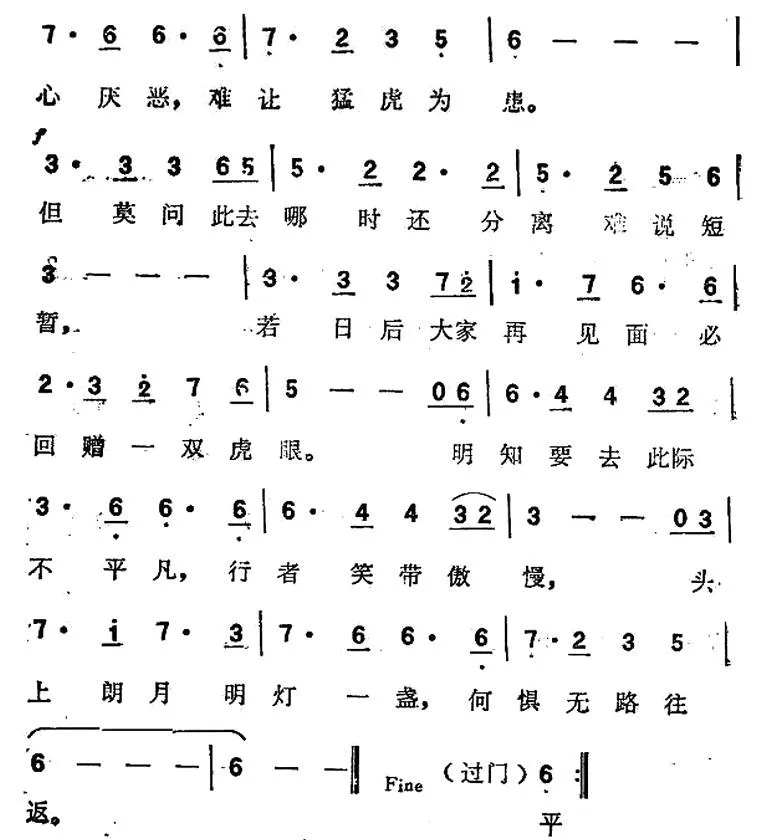 7· 6 6· 6 | 7· 2 3 5 | 6 — — — |
心 厌 恶, 难 让 猛 虎 为 患。
f
3· 3 3 6 5 | 5· 2 2· 2 | 5· 2 5 6 |
但 莫 问 此 去 哪 时 还 分 离 难 说 短
3 — — — | 3· 3 3 7 2 | 1· 7 6· 6 |
暂, 若 日 后 大 家 再 见 面 必
2· 3 2 7 6 | 5 — — 0 6 | 6· 4 4 3 2 |
回 赠 一 双 虎 眼。 明 知 要 去 此 际
3· 6 6· 6 | 6· 4 4 3 2 | 3 — — 0 3 |
不 平 凡, 行 者 笑 带 傲 慢, 头
7· 1 7· 3 | 7· 6 6· 6 | 7· 2 3 5 |
上 朗 月 明 灯 一 盏, 何 惧 无 路 往
6 — — — | 6 — — ‖ Fine (过门) 6 :‖
返。 平